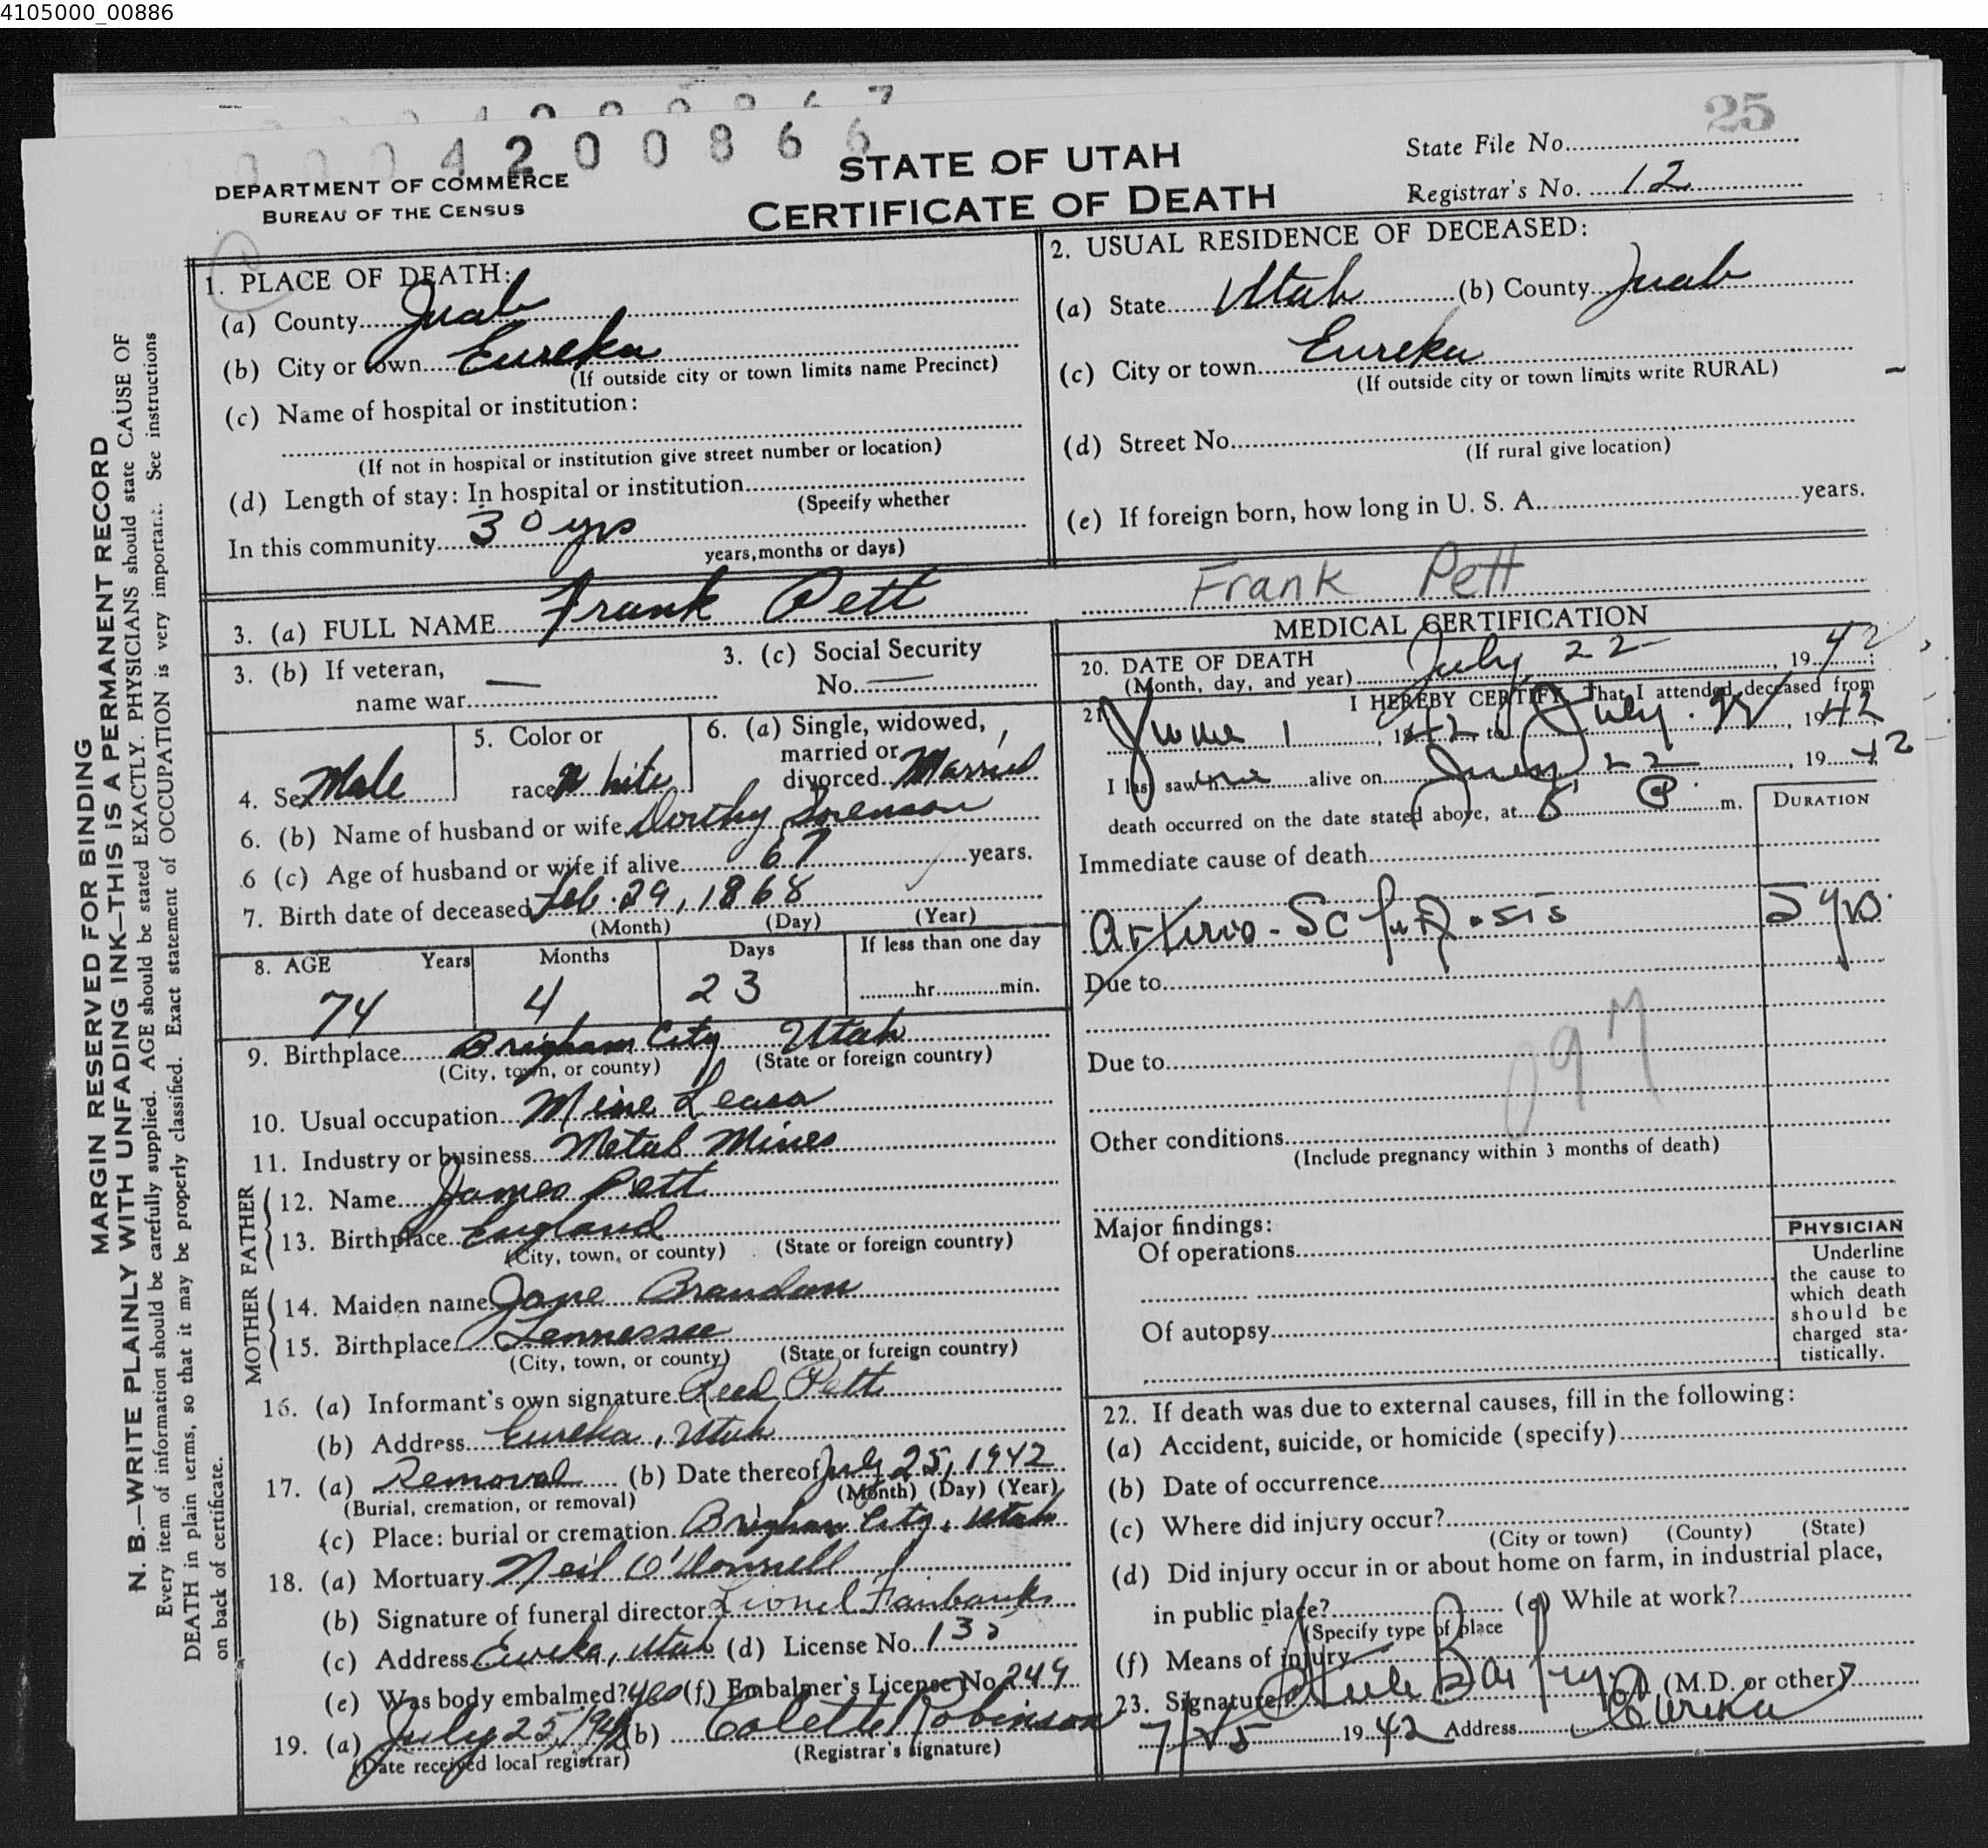 4105000_00886
4 2 0 0 8 6 6
25
STATE OF UTAH
CERTIFICATE OF DEATH
DEPARTMENT OF COMMERCE
BUREAU OF THE CENSUS
State File No.
Registrar's No. 12
MARGIN RESERVED FOR BINDING
N. B.—WRITE PLAINLY WITH UNFADING INK—THIS IS A PERMANENT RECORD
Every item of information should be carefully supplied. AGE should be stated EXACTLY. PHYSICIANS should state CAUSE OF
DEATH in plain terms, so that it may be properly classified. Exact statement of OCCUPATION is very important. See instructions
on back of certificate.
1. PLACE OF DEATH:
(a) County Juab
(b) City or town Eureka
(If outside city or town limits name Precinct)
(c) Name of hospital or institution:
(If not in hospital or institution give street number or location)
(d) Length of stay: In hospital or institution
(Specify whether
In this community 30 yrs
years, months or days)
2. USUAL RESIDENCE OF DECEASED:
(a) State Utah (b) County Juab
(c) City or town Eureka
(If outside city or town limits write RURAL)
(d) Street No.
(If rural give location)
(e) If foreign born, how long in U. S. A. years.
3. (a) FULL NAME Frank Pett
Frank Pett
3. (b) If veteran,
name war —
3. (c) Social Security
No. —
4. Sex Male
5. Color or
race White
6. (a) Single, widowed,
married or
divorced Married
6. (b) Name of husband or wife Dorthy Sorenson
6 (c) Age of husband or wife if alive 67 years.
7. Birth date of deceased Feb. 29, 1868
(Month) (Day) (Year)
8. AGE Years Months Days If less than one day
74 4 23 hr. min.
9. Birthplace Brigham City Utah
(City, town, or county) (State or foreign country)
10. Usual occupation Mine Leasor
11. Industry or business Metal Mines
FATHER
12. Name James Pett
13. Birthplace England
(City, town, or county) (State or foreign country)
MOTHER
14. Maiden name Jane Brandon
15. Birthplace Tennessee
(City, town, or county) (State or foreign country)
16. (a) Informant's own signature Reed Pett
(b) Address Eureka, Utah
17. (a) Removal (b) Date thereof July 25, 1942
(Burial, cremation, or removal) (Month) (Day) (Year)
(c) Place: burial or cremation Brigham City, Utah
18. (a) Mortuary Neil O'Donnell
(b) Signature of funeral director Lionel Fairbanks
(c) Address Eureka, Utah (d) License No. 135
(e) Was body embalmed? yes (f) Embalmer's License No. 249
19. (a) July 25, 1942 (b) Colette Robinson
(Date received local registrar) (Registrar's signature)
MEDICAL CERTIFICATION
20. DATE OF DEATH
(Month, day, and year) July 22, 1942;
21. I HEREBY CERTIFY, That I attended deceased from
June 1, 1942, to July 22, 1942
I last saw him alive on July 22, 1942
death occurred on the date stated above, at 8 P. m.
DURATION
Immediate cause of death
Arterio-Sclerosis 5 yrs.
Due to
Due to
097
Other conditions
(Include pregnancy within 3 months of death)
Major findings:
Of operations
Of autopsy
PHYSICIAN
Underline
the cause to
which death
should be
charged sta-
tistically.
22. If death was due to external causes, fill in the following:
(a) Accident, suicide, or homicide (specify)
(b) Date of occurrence
(c) Where did injury occur?
(City or town) (County) (State)
(d) Did injury occur in or about home on farm, in industrial place,
in public place? (e) While at work?
(Specify type of place
(f) Means of injury
23. Signature Steele Bailey Jr. (M.D. or other)
7/25 1942 Address Eureka